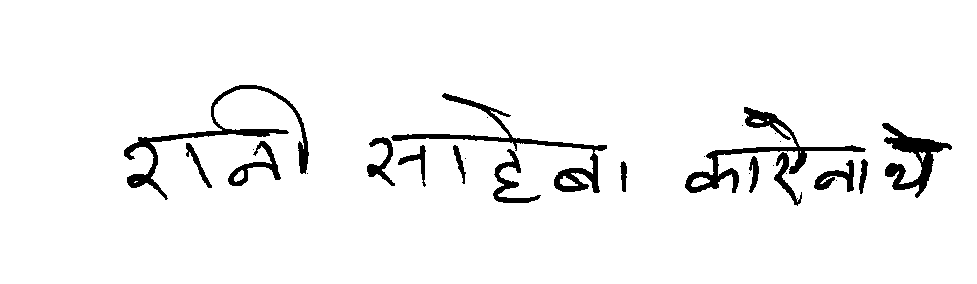 रानी साहेबा कारेनाथे